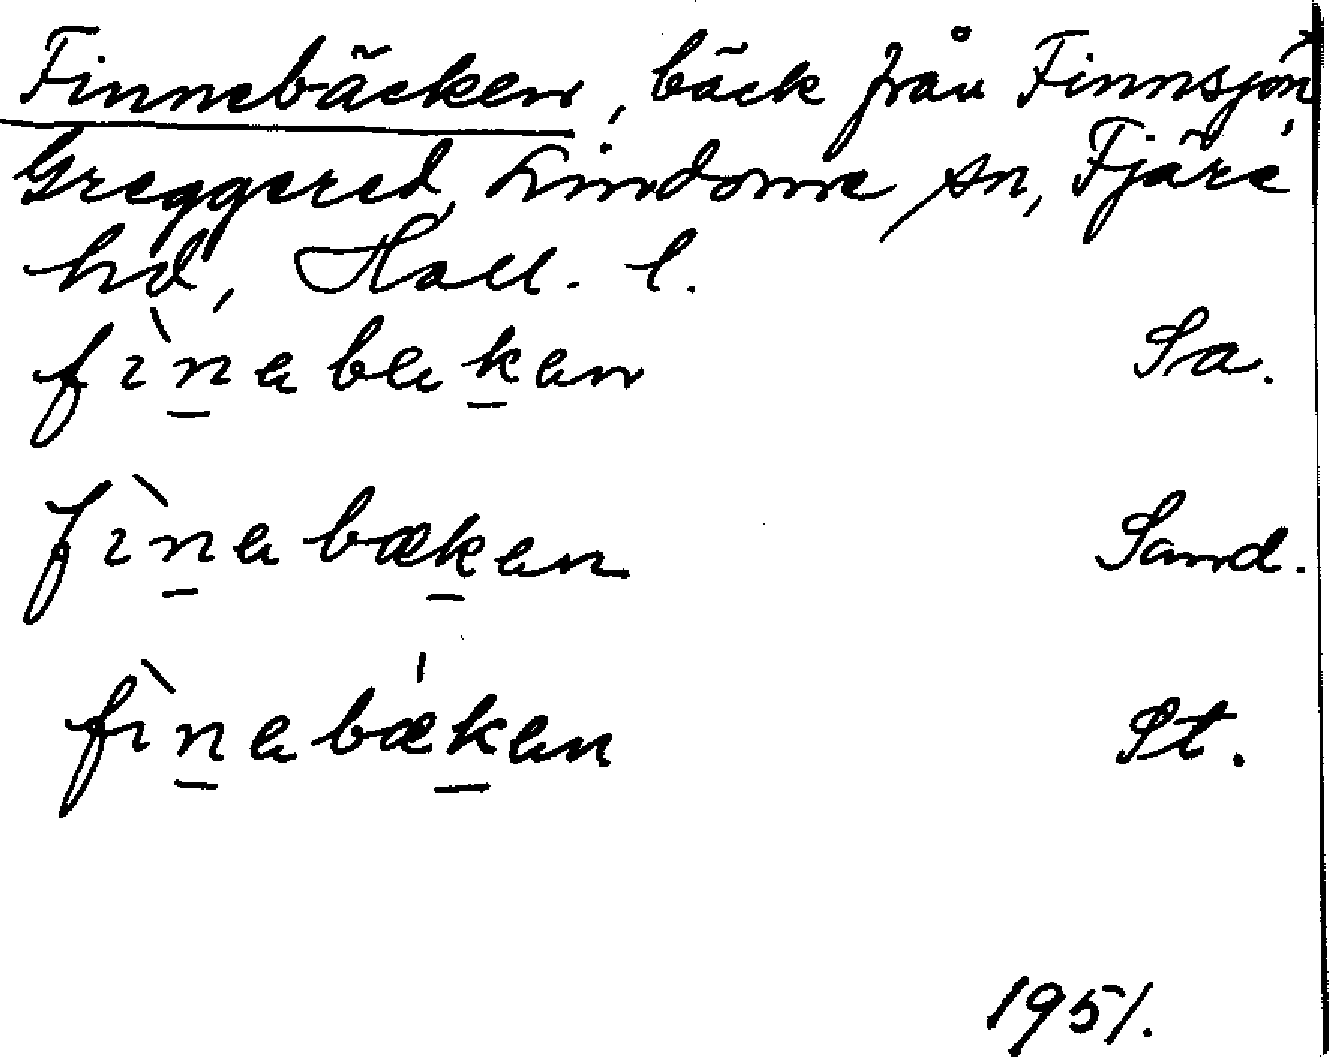 Finnebäcken, bäck från Finnsjön,
Greggered, Lindome sn, Fjäre
hd, Hall. l.
fìnebeken Sa.
fìnebæken Sand.
fìnebæ'ken St.
1951.